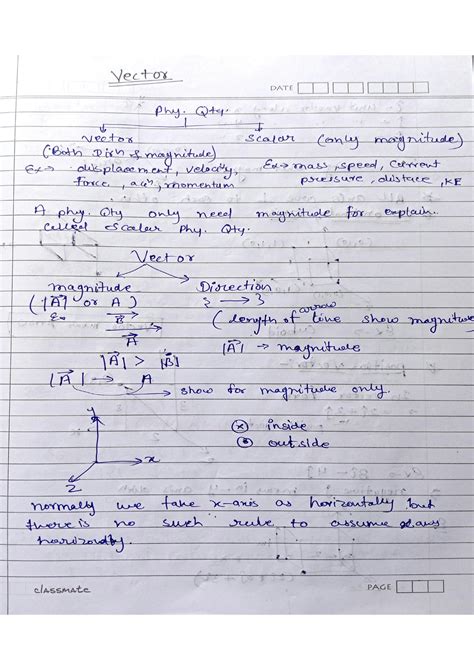 Vector
DATE
Phy. Qty.
Vector Scalar (only magnitude)
(Both Dirn & magnitude) Ex→ mass, speed, Current
Ex→ displacement, velocity, pressure, distace, KE
force, accn, momentum
A phy. Qty only need magnitude for explain.
called Scalar Phy. Qty.
Vector
magnitude Direction
(|A⃗| or A)
arrow
Ex B⃗ (length of line show magnitude
A⃗ |A⃗| → magnitude
|A⃗| > |B⃗|
|A⃗| → A
→ show for magnitude only.
y ⊗ inside
⊙ outside
x
z
normally we take x-axis as horizontally but
there is no such rule to assume
classmate PAGE